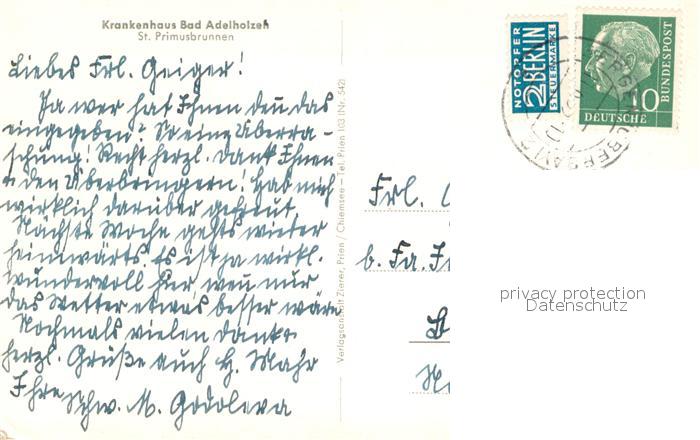 Krankenhaus Bad Adelholzen
St. Primusbrunnen
Liebes Frl. Geiger!
Ja wer hat Ihnen deñ das
eingegeben? So eine Überra-
schung! Recht herzl. Dank Ihnen
+ den Überbringern! Hab mich
wirklich darüber gefreut
Nächste Woche gehts wieter
heimwärts. Es ist ja wirkl.
wundervoll hier weñ nur
das Wetter etwas besser wäre
Nochmals vielen Dank +
herzl. Grüße auch H. Mahr
Ihre Schw. M.
Verlagsanstalt Zierer, Prien / Chiemsee — Tel. Prien 103 (Nr. 542)
NOTOPFER
2 BERLIN
STEUERMARKE
10
DEUTSCHE
BUNDESPOST
Frl.
b. Fa.
privacy protection
Datenschutz